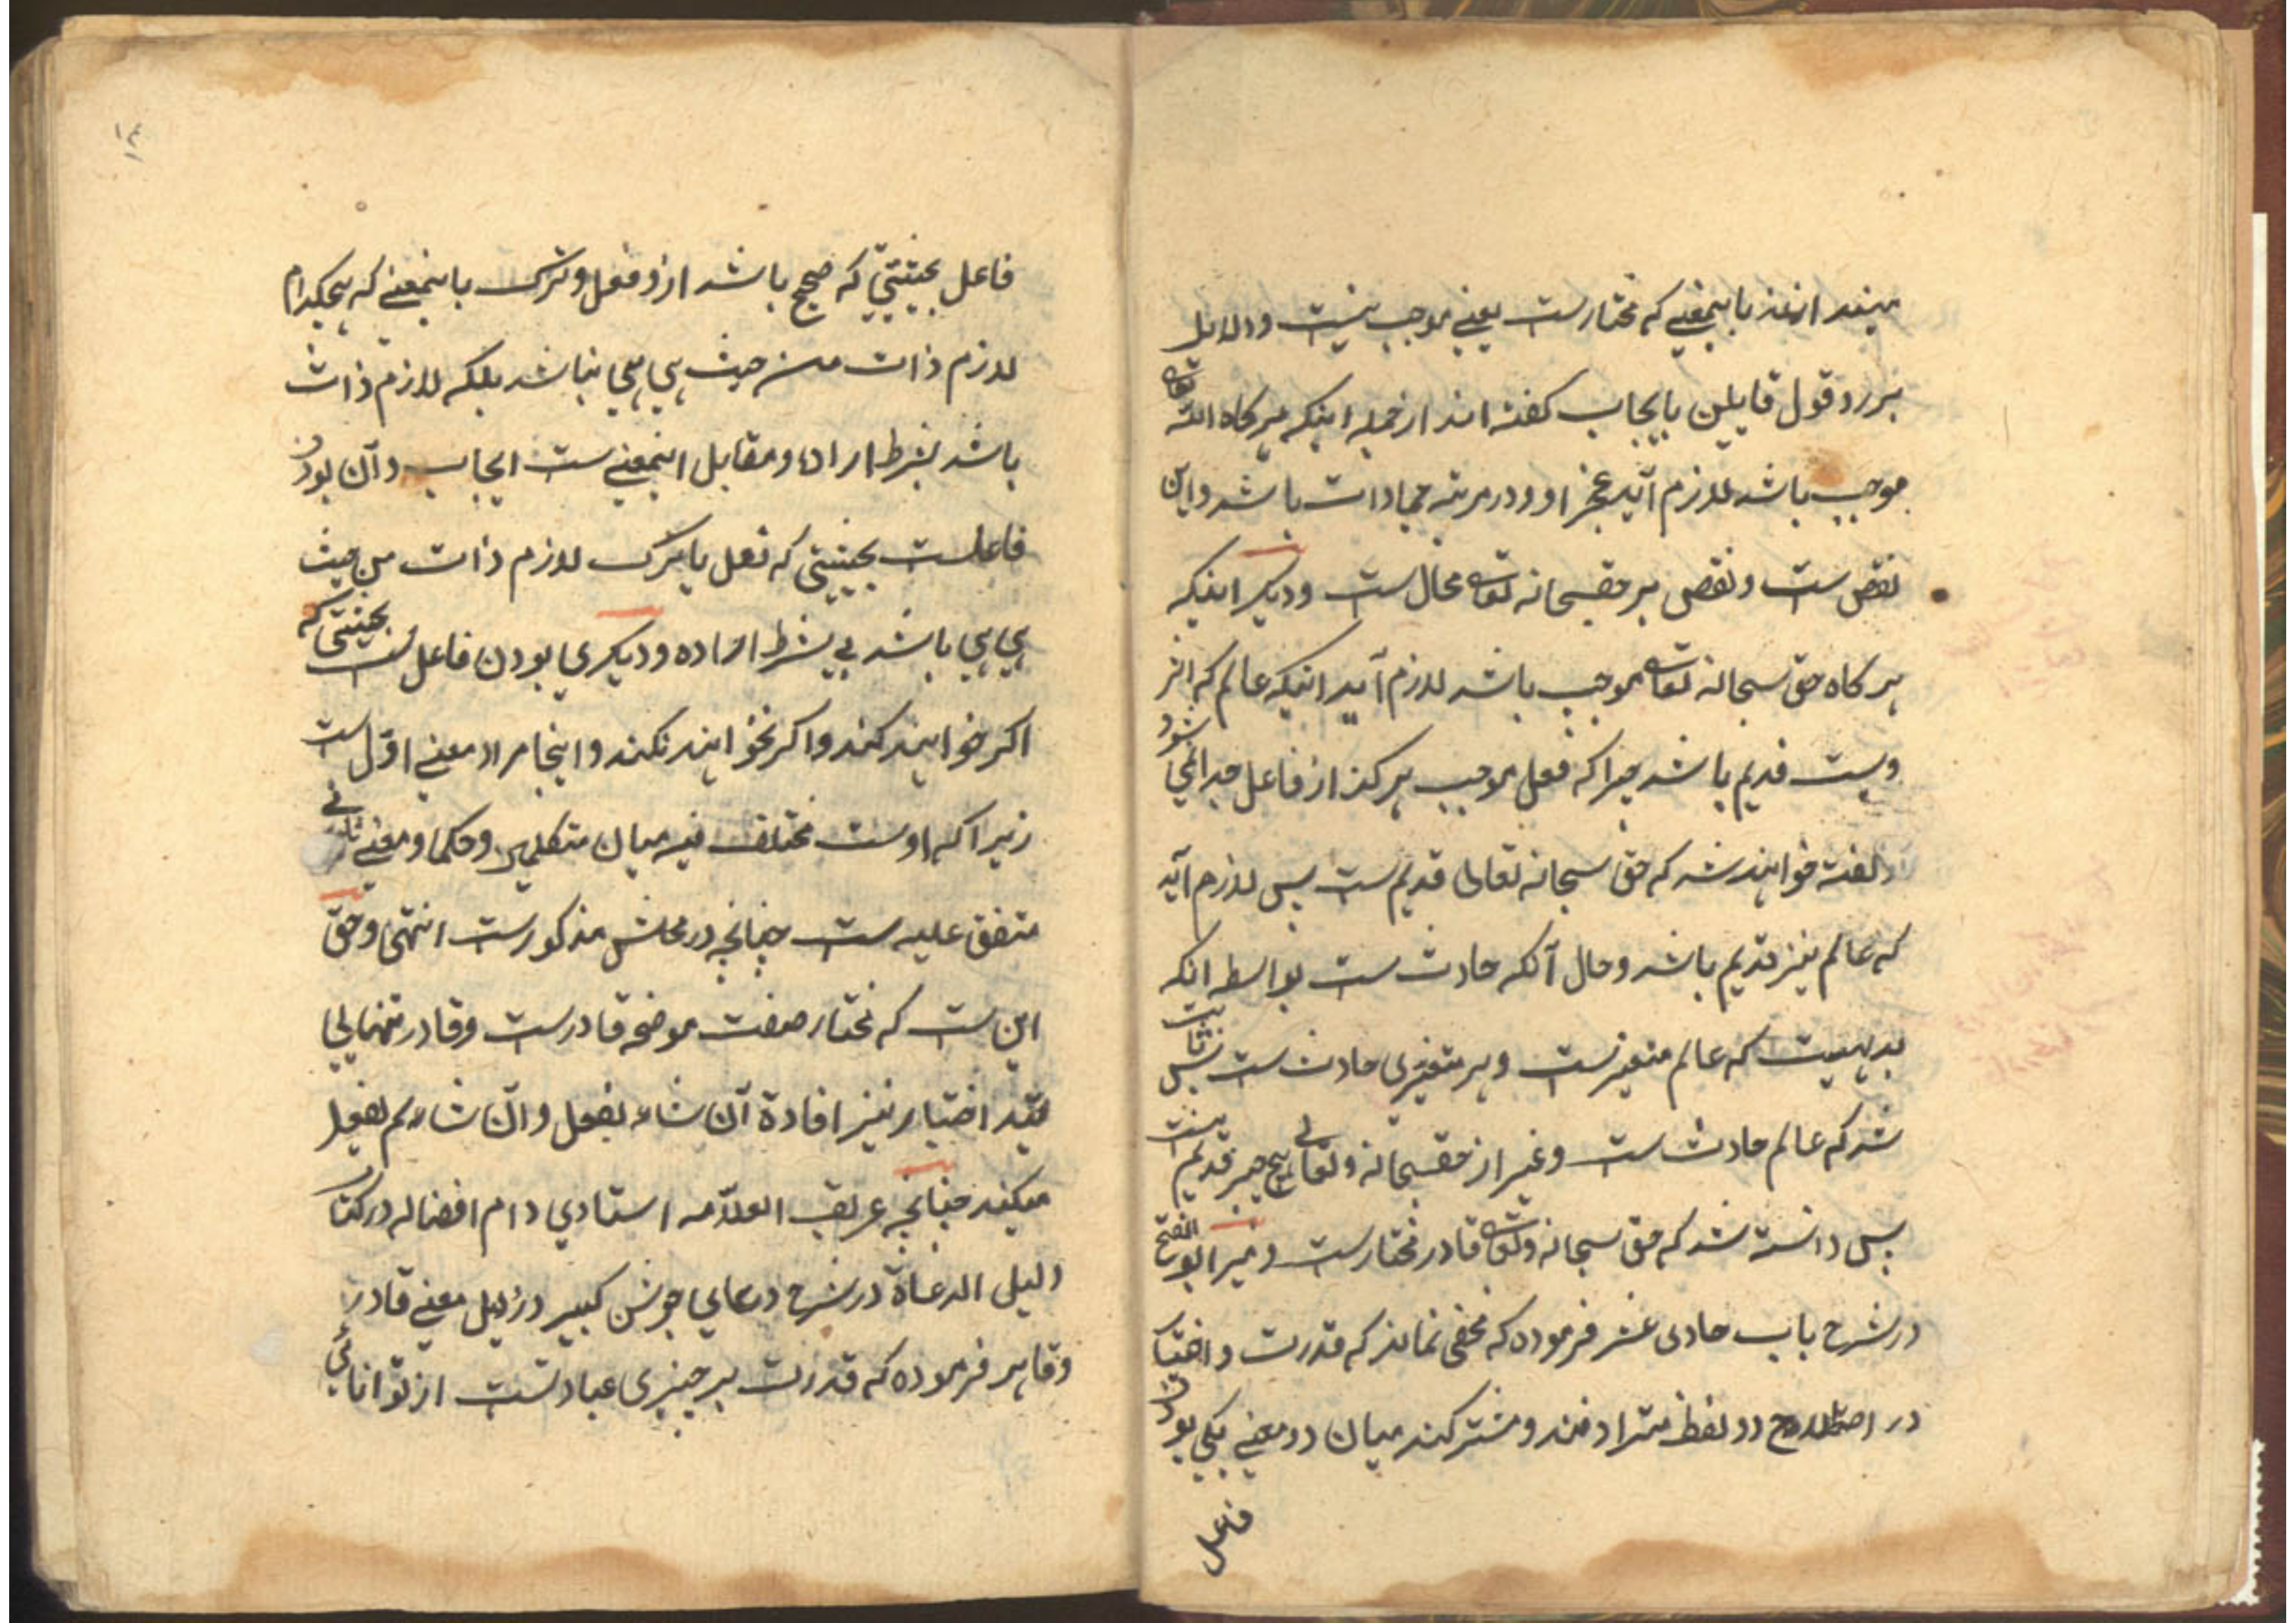 باینمعنی که مختارست یعنی موجب نیست و دلایل
بر رد قول قایلین بایجاب کفته اند از جمله اینکه هر کاه الله تعالی
موجب باشد لازم آید عجز او و در مرتبه جمادات باشد و این
نقص ست و نقص بر حقسبحانه تعالی محال ست و دیکر اینکه
هر کاه حق سبحانه تعالی موجب باشد لازم آید اینکه عالم که اثر
ویست قدیم باشد چرا که فعل موجب هرکز از فاعل جدا نمی شود
کفته خواهد شد که حق سبحانه تعالی قدیم ست پس لازم آید
که عالم نیز قدیم باشد و حال آنکه حادث ست بواسطه انکه
بدیهیست که عالم متغیرست و هر متغیری حادث ست پس ثابت
شد که عالم حادث ست و غیر از حقسبحانه و تعالی هیچ چیز قدیم نیست
پس دانسته شد که حق سبحانه و تعالی قادر مختارست و میر ابو الفتح
در شرح باب حادی عشر فرموده که مخفی نماند که قدرت و اختیار
در اصطلاح دو لفظ مترادفند و مشترکند میان دو معنی یکی بودن
فاعل
۱۴
فاعل بحیثیتی که صحیح باشد ازو فعل و ترک باینمعنی که هیچکدام
لازم ذات من حیث هی هی نباشد بلکه لازم ذات
باشد بشرط اراده و مقابل اینمعنی ست ایجاب و آن بودن
فاعلست بحیثیتی که فعل یا ترک لازم ذات من حیث
هی هی باشد بی شرط اراده و دیکری بودن فاعل ست بحیثیتی که
اکر خواهند کنند و اکر نخواهند نکنند و اینجا مراد معنی اوّل ست
زیرا که اوست مختلف فیه میان متکلمین و حکما و معنی ثانی
متفق علیه ست چنانچه در محلش مذکورست انتهی و حق
این ست که مختار صفت موضحه قادرست و قادر تنها بی
قید اختیار نیز افادهٔ آن شاء یفعل و آن شاء لم یفعل
میکند چنانچه عریف العلاّمه استادی دام افضاله در کتاب
دلیل الدعاة در شرح دعای جوشن کبیر در ذیل معنی قادر
و قاهر فرموده که قدرت بر چیزی عبارتست از توانائی